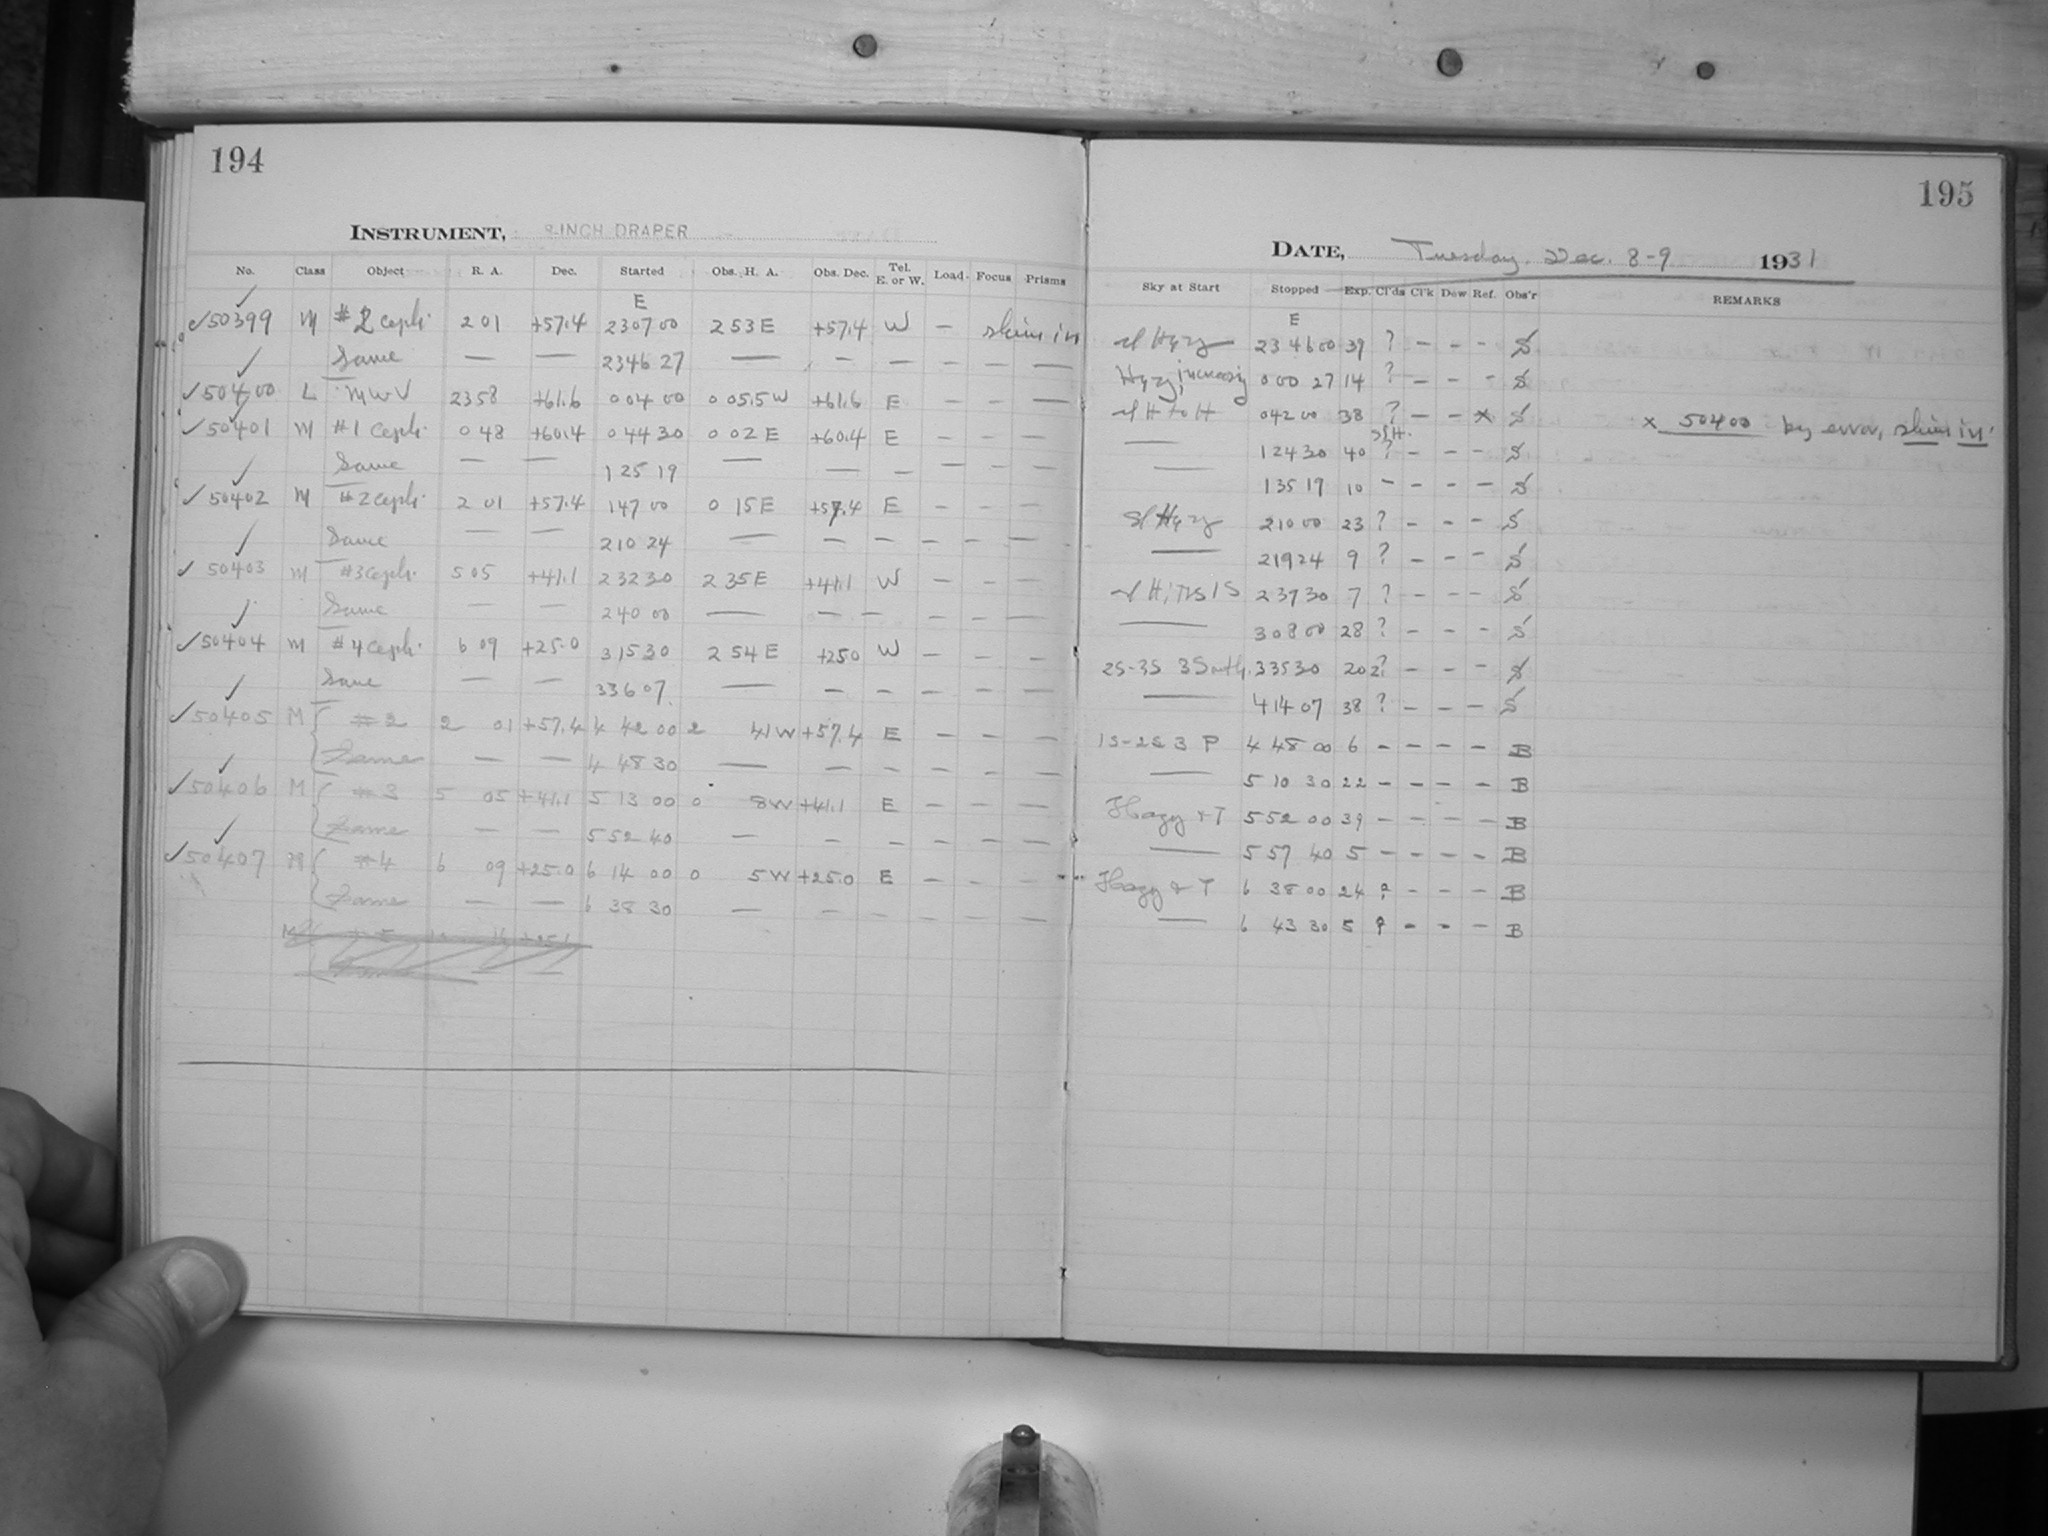 194
INSTRUMENT, 8-INCH DRAPER
No. Class Object R. A. Dec. Started Obs. H. A. Obs. Dec. Tel. E. or W. Load Focus Prisms
E
✓50399 M #2 Ceph. 2 01 +57.4 23 07 00 2 53 E +57.4 W — shim in
✓ Same — — 23 46 27 — — — — — —
✓50400 L MWV 23 58 +61.6 0 04 00 0 05.5 W +61.6 E — — —
✓50401 M #1 Ceph. 0 48 +60.4 0 44 30 0 02 E +60.4 E — — —
Same — — 1 25 19 — — — — — —
✓50402 M #2 Ceph. 2 01 +57.4 1 47 00 0 15 E +57.4 E — — —
✓ Same — — 2 10 24 — — — — — —
✓50403 M #3 Ceph. 5 05 +41.1 2 32 30 2 35 E +41.1 W — — —
✓ Same — — 2 40 00 — — — — — —
✓50404 M #4 Ceph. 6 09 +25.0 3 15 30 2 54 E +25.0 W — — —
✓ Same — — 3 36 07 — — — — — —
✓50405 M #2 2 01 +57.4 4 42 00 2 41 W +57.4 E — — —
✓ Same — — 4 48 30 — — — — — —
✓50406 M #3 5 05 +41.1 5 13 00 0 8 W +41.1 E — — —
✓ Same — — 5 52 40 — — — — — —
✓50407 M #4 6 09 +25.0 6 14 00 0 5 W +25.0 E — — —
Same — — 6 38 30 — — — — — —
195
DATE, Tuesday. Dec. 8-9 1931
Sky at Start Stopped Exp. Cl'ds Cl'k Dew Ref. Obs'r REMARKS
E
sl Hazy 23 46 00 39 ? — — — S
Hazy, increasing 0 00 27 14 ? — — — S
sl H to H 0 42 00 38 ? — — x S x 50400 by error, shim in.
— 1 24 30 40 ? — — — S
— 1 35 19 10 — — — — S
Sl Hazy 2 10 00 23 ? — — — S
— 2 19 24 9 ? — — — S
2 39 30 7 ? — — — S
— 3 08 00 28 ? — — — S
2S-3S 3 3 35 30 20 ? — — — S
— 4 14 07 38 ? — — — S
1S-2S 3 P 4 48 00 6 — — — — B
— 5 10 30 22 — — — — B
Hazy & T 5 52 00 39 — — — — B
— 5 57 40 5 — — — — B
Hazy & T 6 38 00 24 ? — — — B
— 6 43 30 5 ? — — — B